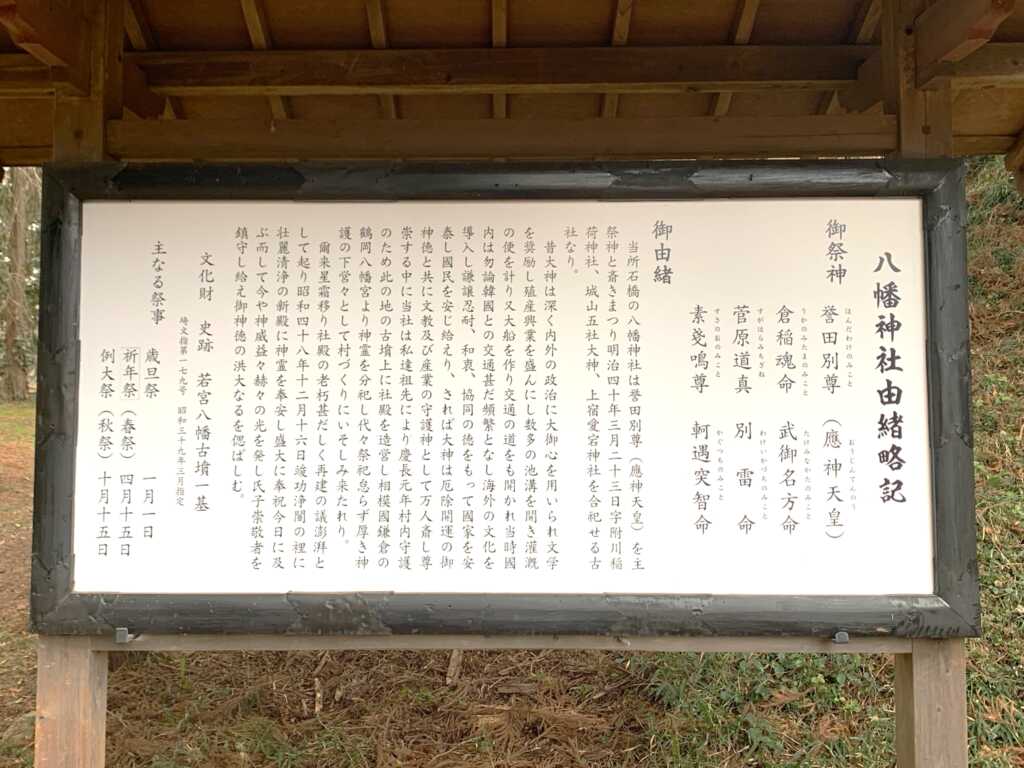 八幡神社由緒略記
御祭神
誉田別尊（應神天皇）
ほんだわけのみこと
おうじんてんのう
倉稲魂命　武御名方命
うかのみたまのみこと
たけみなかたのみこと
菅原道真　別雷命
すがはらみちざね
わけいかづちのみこと
素戔鳴尊　軻遇突智命
すさのおのみこと
かぐつちのみこと
御由緒
当所石橋の八幡神社は誉田別尊（應神天皇）を主
祭神と斎きまつり明治四十年三月二十三日字附川稲
荷神社、城山五社大神、上宿愛宕神社を合祀せる古
社なり。
昔大神は深く内外の政治に大御心を用いられ文学
を奨励し殖産興業を盛んにし数多の池溝を開き灌漑
の便を計り又大船を作り交通の道をも開かれ当時國
内は勿論韓國との交通甚だ頻繁となし海外の文化を
導入し謙譲忍耐、和衷、協同の徳をもって國家を安
泰し國民を安じ給えり、されば大神は厄除開運の御
神徳と共に文教及び産業の守護神として万人斎し尊
崇する中に当社は私達祖先により慶長元年村内守護
のため此の地の古墳上に社殿を造営し相模國鎌倉の
鶴岡八幡宮より神霊を分祀し代々祭祀怠らず厚き神
護の下営々として村づくりにいそしみ来たれり。
爾来星霜移り社殿の老朽甚だしく再建の議澎湃と
して起り昭和四十八年十二月十六日竣功浄闇の裡に
壮麗清浄の新殿に神霊を奉安し盛大に奉祝今日に及
ぶ而して今や神威益々赫々の光を発し氏子崇敬者を
鎮守し給え御神徳の洪大なるを偲ばしむ。
文化財　史跡　若宮八幡古墳一基
埼文指第一七九号　昭和三十九年三月指定
主なる祭事
歳旦祭　一月一日
祈年祭（春祭）四月十五日
例大祭（秋祭）十月十五日